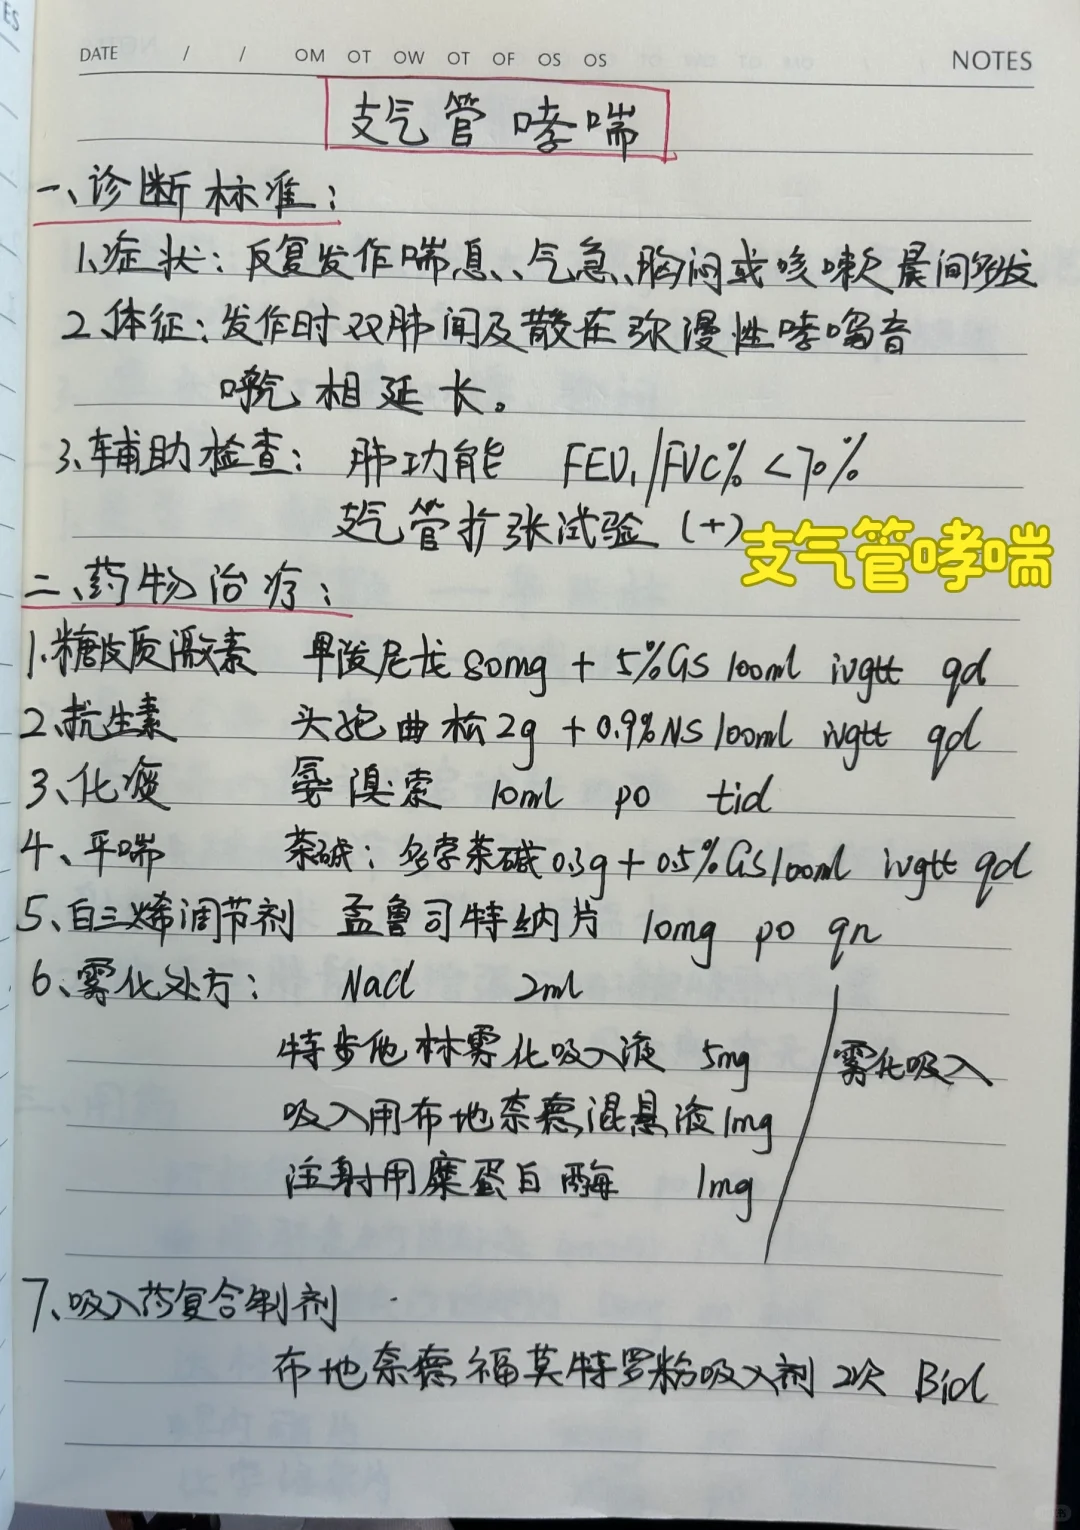 DATE / / OM OT OW OT OF OS OS NOTES
支气管哮喘
一、诊断标准:
1.症状:反复发作喘息、气急、胸闷或咳嗽晨间多发
2.体征:发作时双肺闻及散在弥漫性哮鸣音
呼气相延长。
3.辅助检查: 肺功能 FEV₁/FVC% <70%
支气管扩张试验 (+)
支气管哮喘
二、药物治疗:
1.糖皮质激素 甲泼尼龙 80mg + 5%GS 100ml ivgtt qd
2.抗生素 头孢曲松 2g + 0.9%NS 100ml ivgtt qd
3、化痰 氨溴索 10ml po tid
4、平喘 茶碱:多索茶碱0.3g + 0.5%GS 100ml ivgtt qd
5、白三烯调节剂 孟鲁司特纳片 10mg po qn
6、雾化处方: NaCl 2ml
特步他林雾化吸入液 5mg
雾化吸入
吸入用布地奈德混悬液 1mg
注射用糜蛋白酶 1mg
7、吸入药复合制剂
布地奈德福莫特罗粉吸入剂 2次 Bid